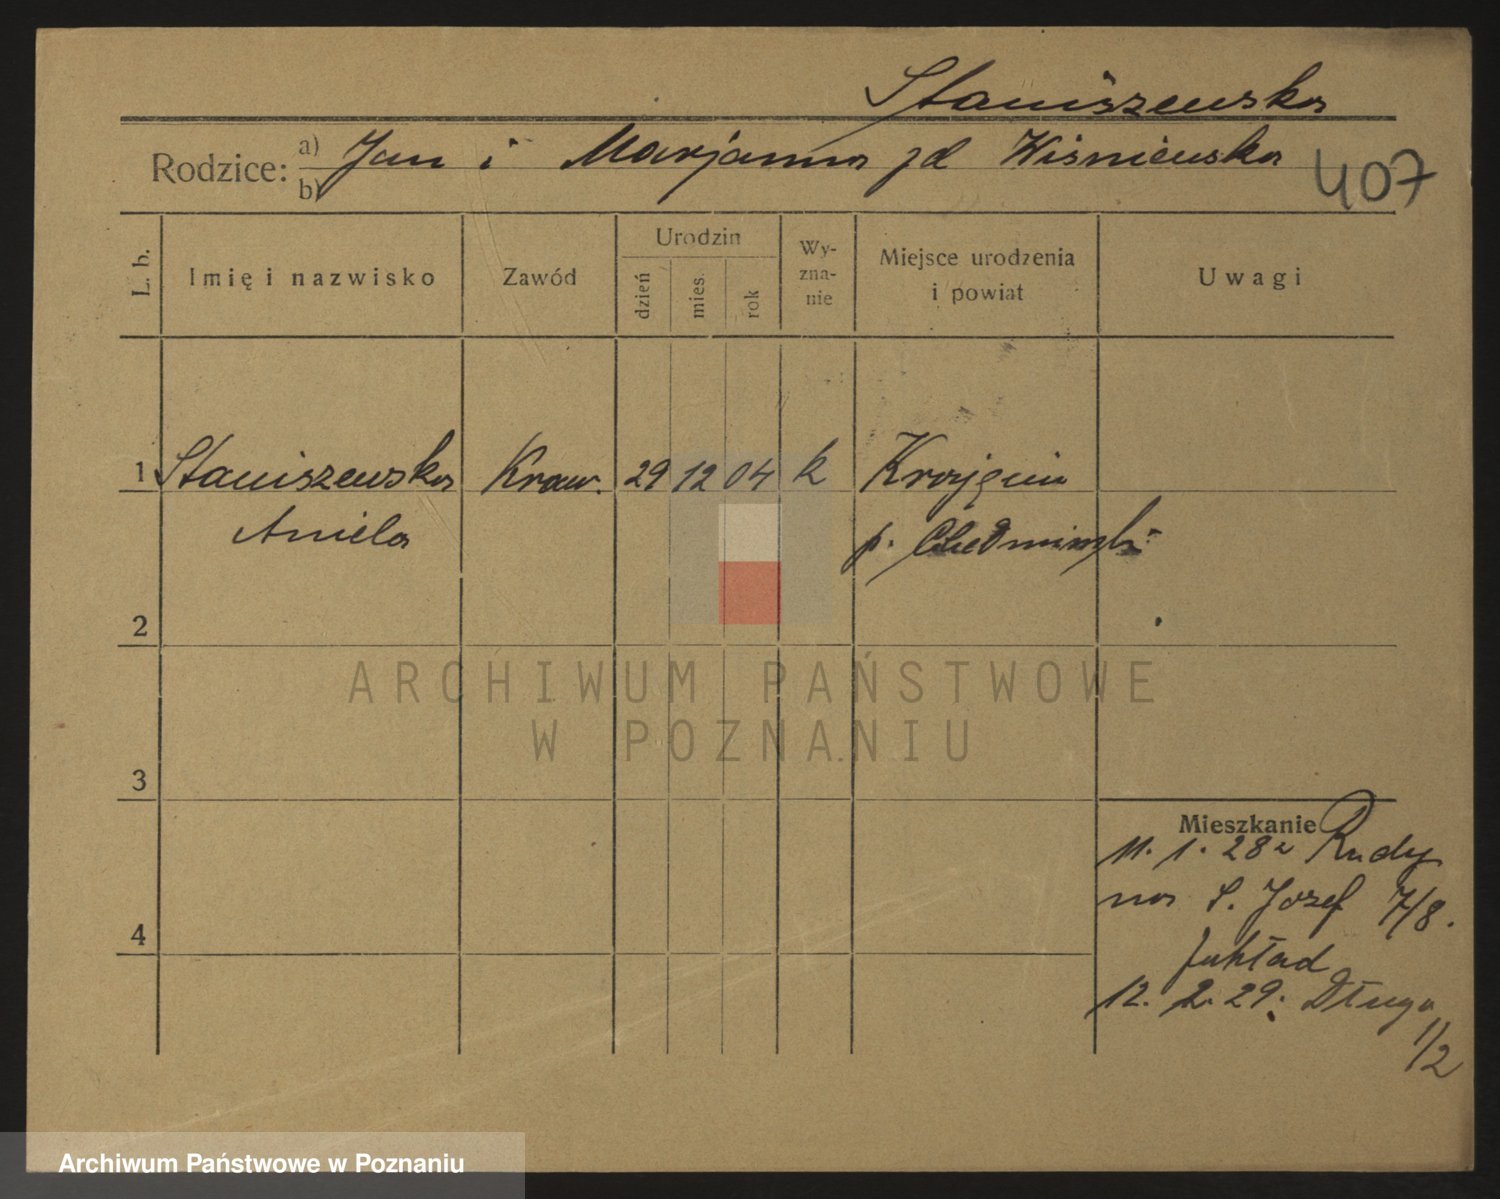 Staniszewska
Rodzice: a) Jan i Marjanna zd Wiśniewska
b)
407
L. b.
Imię i nazwisko
Zawód
Urodzin
dzień
mies.
rok
Wy-
zna-
nie
Miejsce urodzenia
i powiat
Uwagi
1 Staniszewska Kraw. 29 12 04 k
Aniela
p.
2
3
4
Mieszkanie
11. 1. 28 z Rudy
na S. Józef 7/8.
zakład
12. 2. 29. Długa
1/2
ARCHIWUM PAŃSTWOWE
W POZNANIU
Archiwum Państwowe w Poznaniu